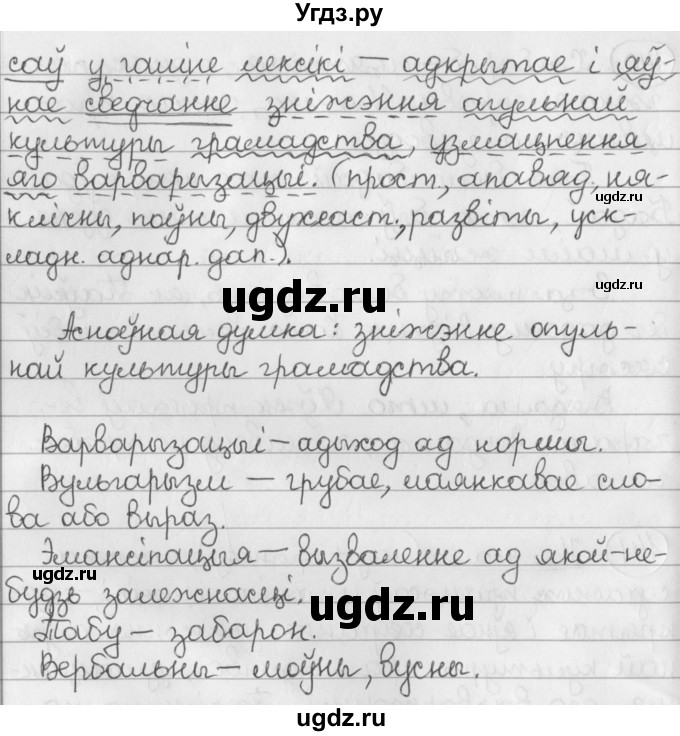 Угдз.ру
саў у галіне лексікі — адкрытае і яў-
нае сведчанне зніжэння агульнай
культуры грамадства, узмацнення
яго варварызацыі. (прост, апавяд, ня-
клічны, поўны, двухсаст., развіты, уск-
ladн. аднар. дап.).
ugdz.ru
ugdz.ru
Асноўная думка: зніжэнне агуль-
най культуры грамадства.
Варварызацыі — адыход ад нормы.
Вульгарызм — грубае, лаянкавае сло-
ва або выраз.
ugdz.ru
Эмансіпацыя — вызваленне ад якой-не-
будзь залежнасці.
ugdz.ru
ugdz.ru
Табу — забарон.
Вербальны — моўны, вусны.
ugdz.ru